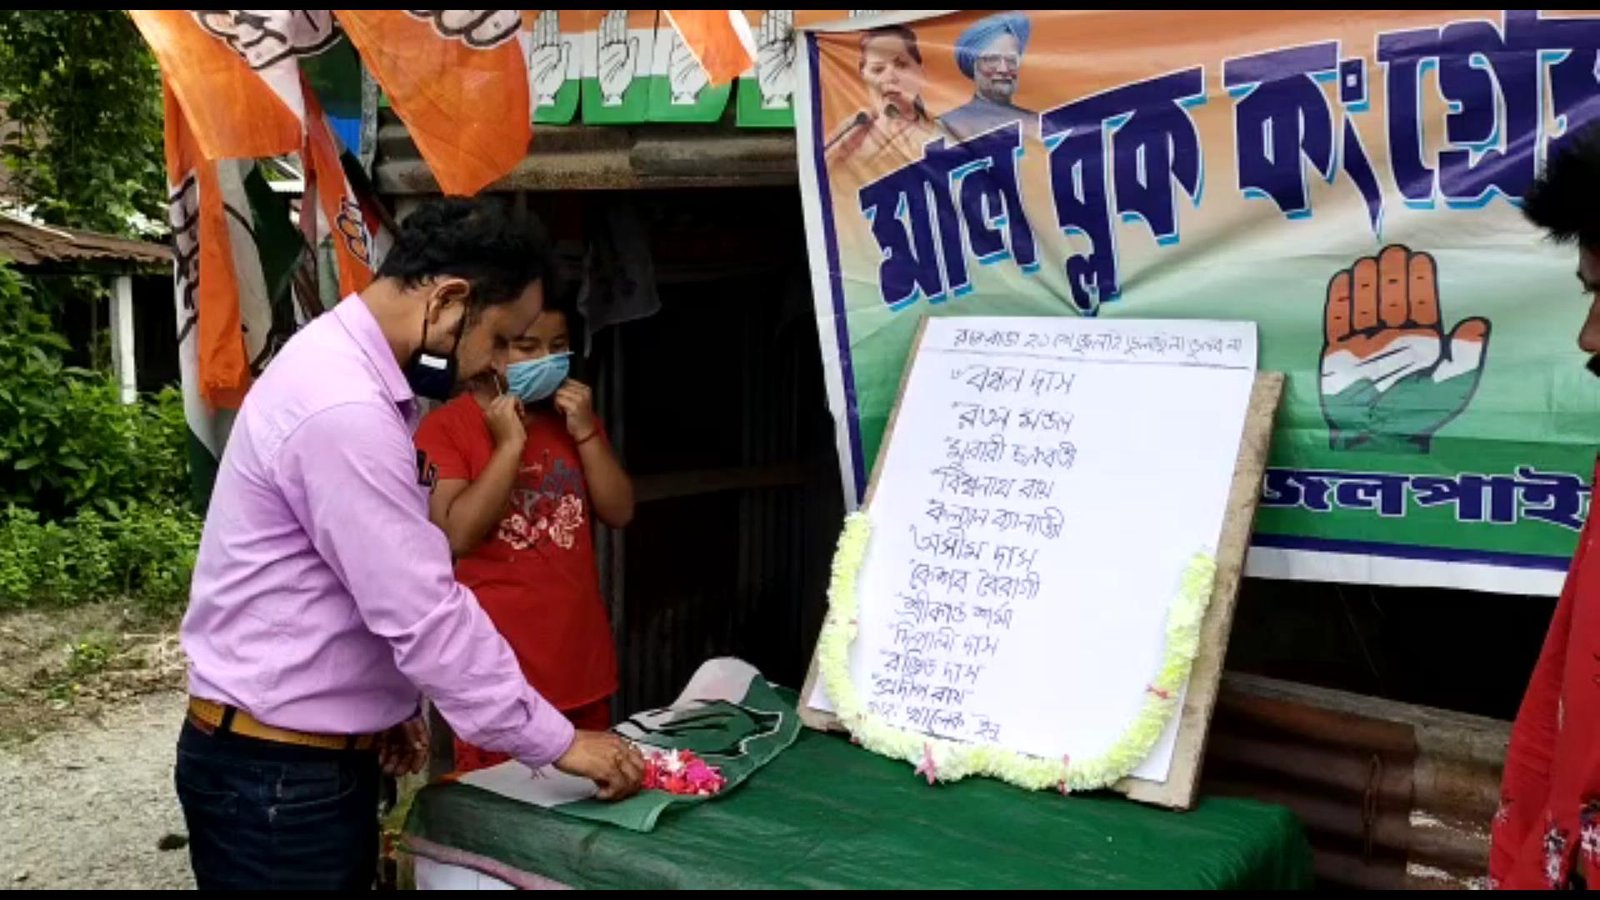 মাল ব্লক কংগ্রেস
রক্তঝরা ২১ শে জুলাই ভুলছিনা ভুলব না
বন্ধন দাস
রতন মন্ডল
মুরারী চক্রবর্তী
বিশ্বনাথ রায়
কল্যান ব্যানার্জী
অসীম দাস
কেশব বৈরাগী
শ্রীকান্ত শর্মা
দিলীপ দাস
রঞ্জিত দাস
প্রদীপ রায়
খালেক
জলপাই